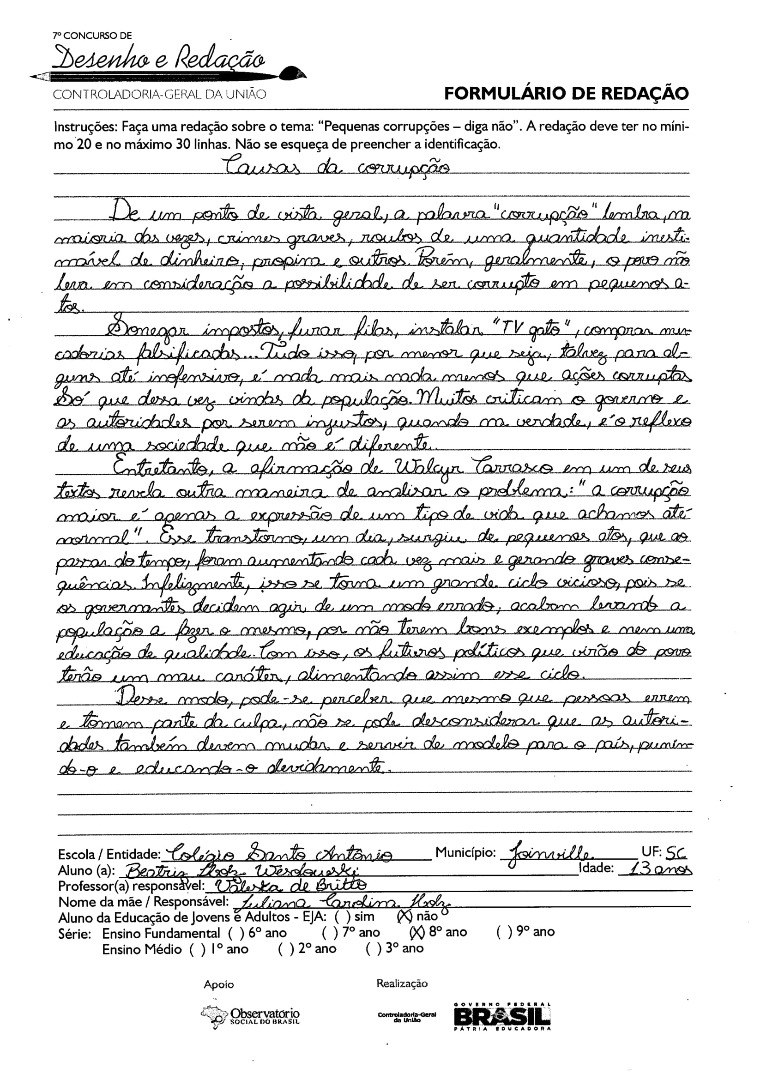 7º CONCURSO DE
Desenho e Redação
CONTROLADORIA-GERAL DA UNIÃO
FORMULÁRIO DE REDAÇÃO
Instruções: Faça uma redação sobre o tema: “Pequenas corrupções – diga não”. A redação deve ter no míni-
mo 20 e no máximo 30 linhas. Não se esqueça de preencher a identificação.
Causas da corrupção
De um ponto de vista geral, a palavra "corrupção" lembra, na
maioria das vezes, crimes graves, roubos de uma quantidade inesti-
mável de dinheiro, propina e outros. Porém, geralmente, o povo não
leva em consideração a possibilidade de ser corrupto em pequenos a-
tos.
Sonegar impostos, furar filas, instalar "TV gato", comprar mer-
cadorias falsificadas... Tudo isso, por menor que seja, talvez para al-
guns até inofensivo, é nada mais nada menos que ações corruptas
Só que dessa vez vindas da população. Muitos criticam o governo e
as autoridades por serem injustos, quando na verdade, é o reflexo
de uma sociedade que não é diferente.
Entretanto, a afirmação de Walcyr Carrasco em um de seus
textos revela outra maneira de analisar o problema: "a corrupção
maior é apenas a expressão de um tipo de vida que achamos até
normal". Esse transtorno, um dia, surgiu de pequenos atos, que ao
passar do tempo, foram aumentando cada vez mais e gerando graves conse-
quências. Infelizmente, isso se torna um grande ciclo vicioso, pois se
os governantes decidem agir de um modo errado, acabam levando a
população a fazer o mesmo, por não terem bons exemplos e nem uma
educação de qualidade. Com isso, os futuros políticos que virão do povo
terão um mau caráter, alimentando assim esse ciclo.
Desse modo, pode-se perceber que mesmo que pessoas errem
e tomem parte da culpa, não se pode desconsiderar que as autori-
dades também devem mudar e servir de modelo para o país, punin-
do-o e educando-o devidamente.
Escola / Entidade: Colégio Santo Antônio Município: Joinville UF: SC
Aluno (a): Beatriz Idade: 13 anos
Professor(a) responsável: Valeska de Britto
Nome da mãe / Responsável: Juliana Carolina
Aluno da Educação de Jovens e Adultos - EJA: ( ) sim (X) não
Série: Ensino Fundamental ( ) 6º ano ( ) 7º ano (X) 8º ano ( ) 9º ano
Ensino Médio ( ) 1º ano ( ) 2º ano ( ) 3º ano
Apoio Realização
Observatório
SOCIAL DO BRASIL
Controladoria-Geral
da União
GOVERNO FEDERAL
BRASIL
PÁTRIA EDUCADORA